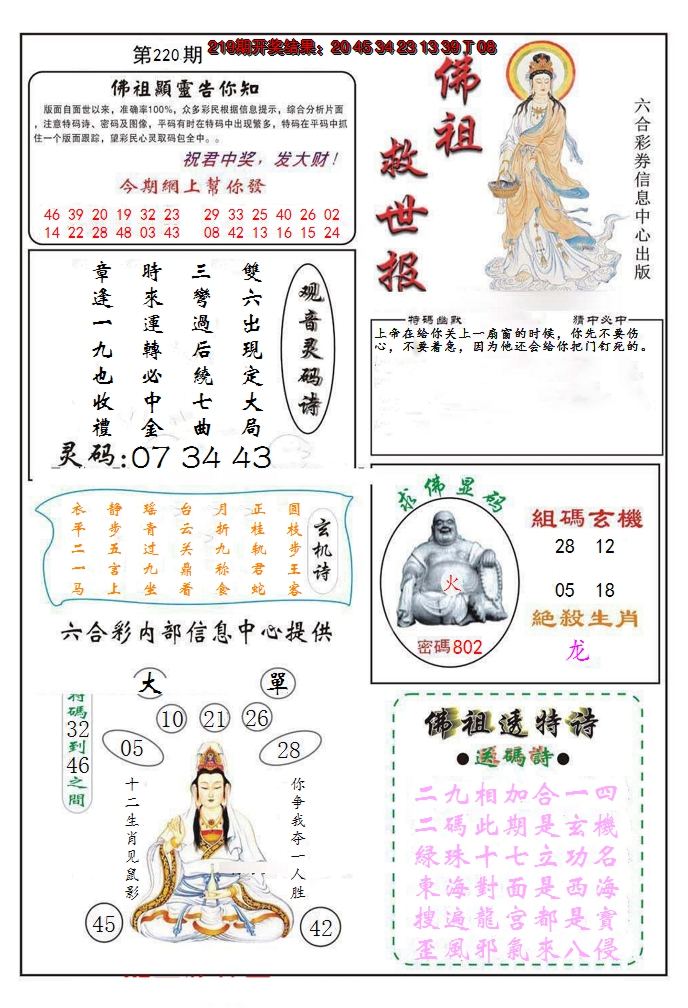 第220期
219期开奖结果：20 45 34 23 13 39 T 08
佛祖顯靈告你知
版面自面世以来，准确率100%，众多彩民根据信息提示，综合分析片面
，注意特码诗、密码及图像，平码有时在特码中出现繁多，特码在平码中抓
住一个版面跟踪，望彩民心灵取码包全中。。
祝君中奖，发大财！
今期網上幫你發
46 39 20 19 32 23 29 33 25 40 26 02
14 22 28 48 03 43 08 42 13 16 15 24
佛祖
救世报
六合彩券信息中心出版
观音灵码诗
雙六出现定大局
三彎過后繞七曲
時來運轉必中金
章逢一九也收禮
灵码:07 34 43
特碼幽默
猜中必中
上帝在给你关上一扇窗的时候，你先不要伤
心，不要着急，因为他还会给你把门钉死的。
玄机诗
圆枝步王客
正桂軌君蛇
月折九称食
台云关鼎着
瑶青过九坐
静步五宫上
衣平二一马
六合彩内部信息中心提供
求佛显码
火
密碼802
組碼玄機
28 12
05 18
絕殺生肖
龙
大
單
特碼32到46之間
10 21 26
05
28
十二生肖见鼠影
你争我夺一人胜
45
42
佛祖透特诗
●送碼詩●
二九相加合一四
二碼此期是玄機
綠珠十七立功名
東海對面是西海
搜遍龍宫都是寶
歪風邪氣來八侵